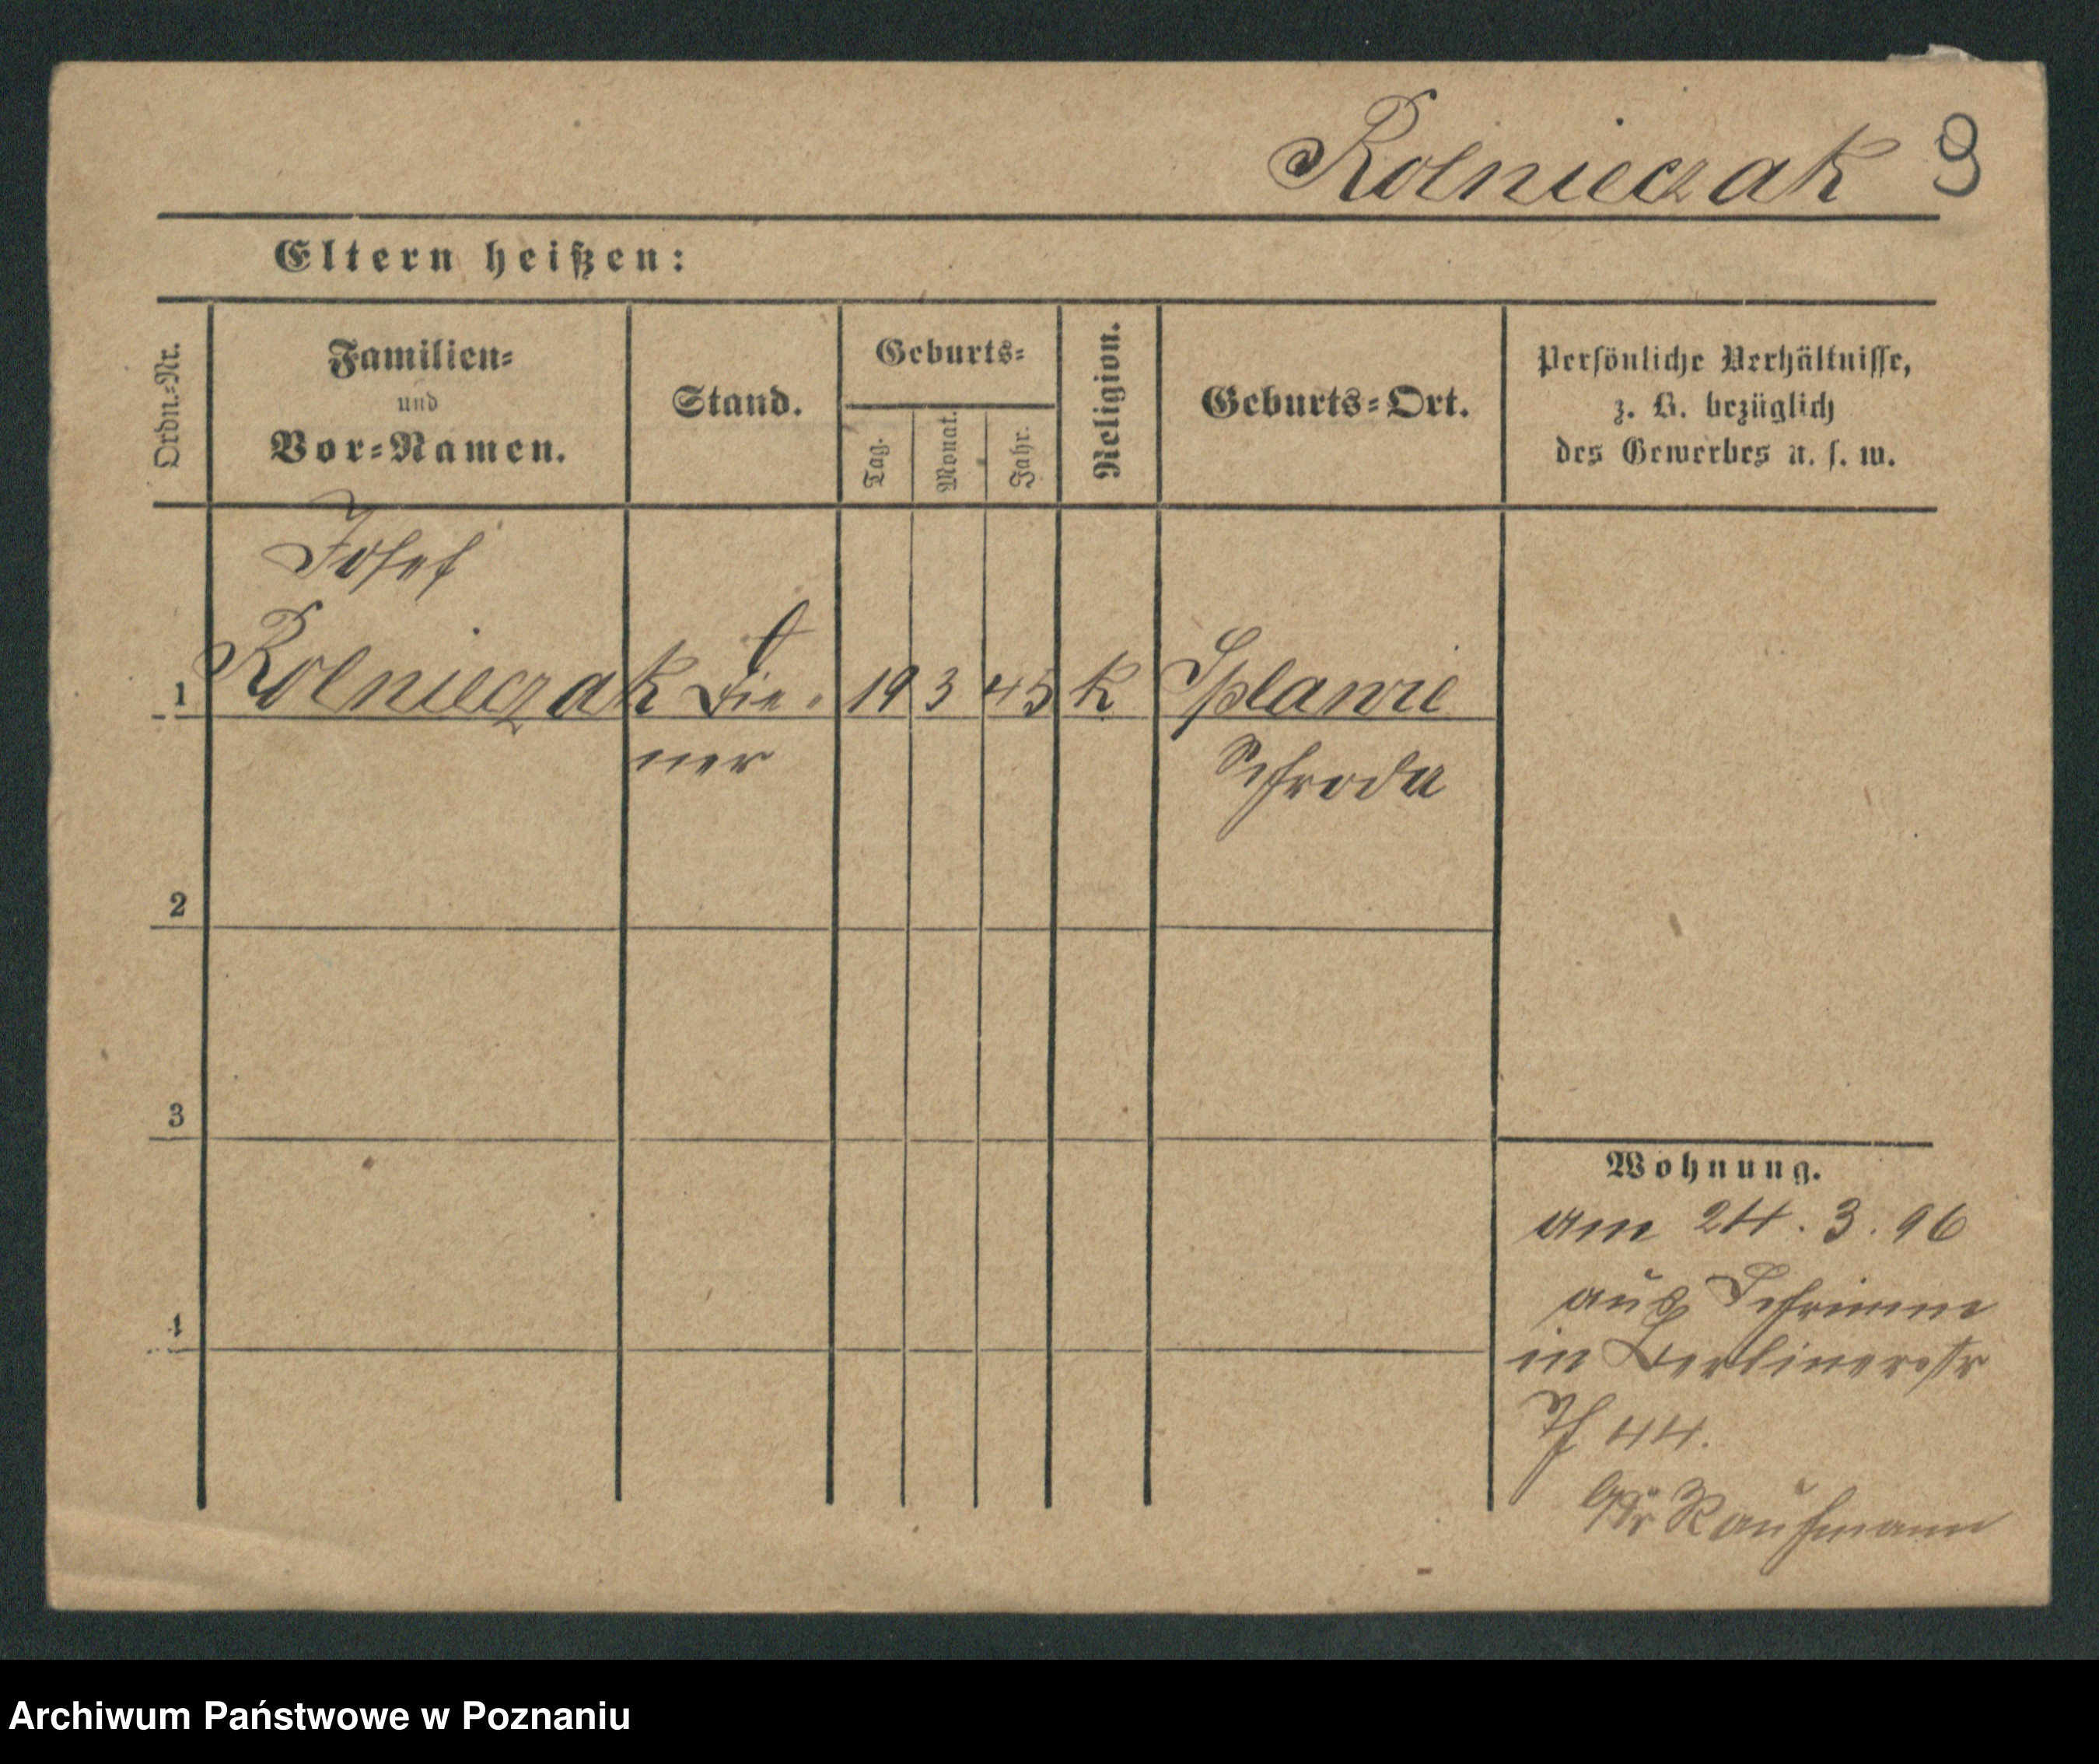 Rolnieczak 9
Eltern heißen:
Ordn.-Nr.
Familien-
und
Vor-Namen.
Stand.
Geburts-
Tag.
Monat.
Jahr.
Religion.
Geburts-Ort.
Persönliche Verhältnisse,
z. B. bezüglich
des Gewerbes u. s. w.
Josef
1 Rolnieczak Die- 19 3 45 K Splawie
ner Schroda
2
3
4
Wohnung.
am 24. 3. 96
aus Schrimm
in Berlinerstr
44.
Kaufmann
Archiwum Państwowe w Poznaniu